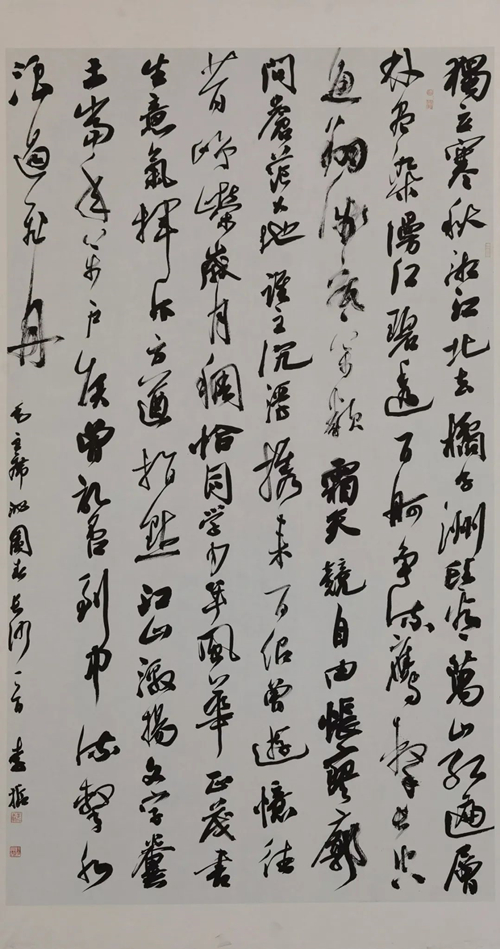 獨立寒秋湘江北去橘子洲頭看萬山紅遍層
林盡染漫江碧透百舸争流鷹擊長空
魚翔淺底万類霜天競自由悵寥廓
問蒼茫大地誰主沉浮攜來百侣曾遊憶往
昔崢嶸歲月稠恰同學少年風華正茂書
生意氣揮斥方遒指點江山激揚文字糞
土當年万户侯曾記否到中流擊水
浪遏飛舟
毛主席沁園春長沙一首